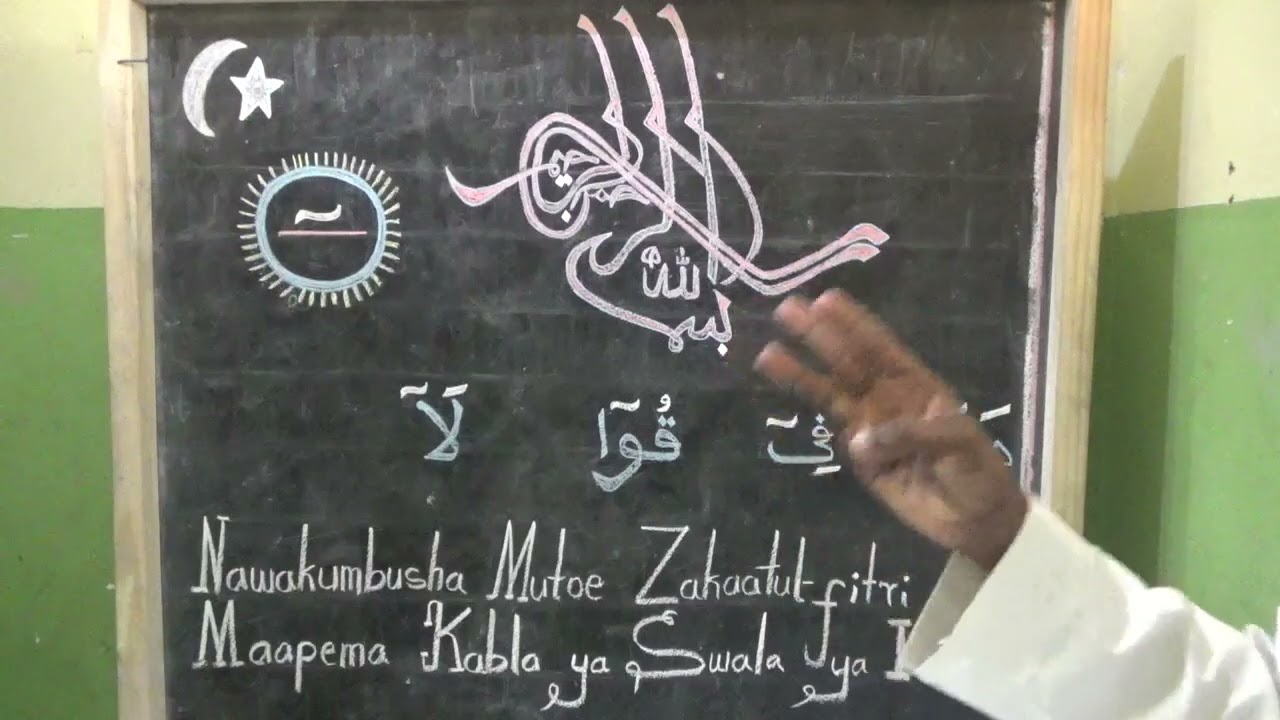 بسم الله الرحمن الرحيم
فِيٓ قُوٓا لَآ
Nawakumbusha Mutoe Zakaatul-fitri
Maapema Kabla ya Swala ya